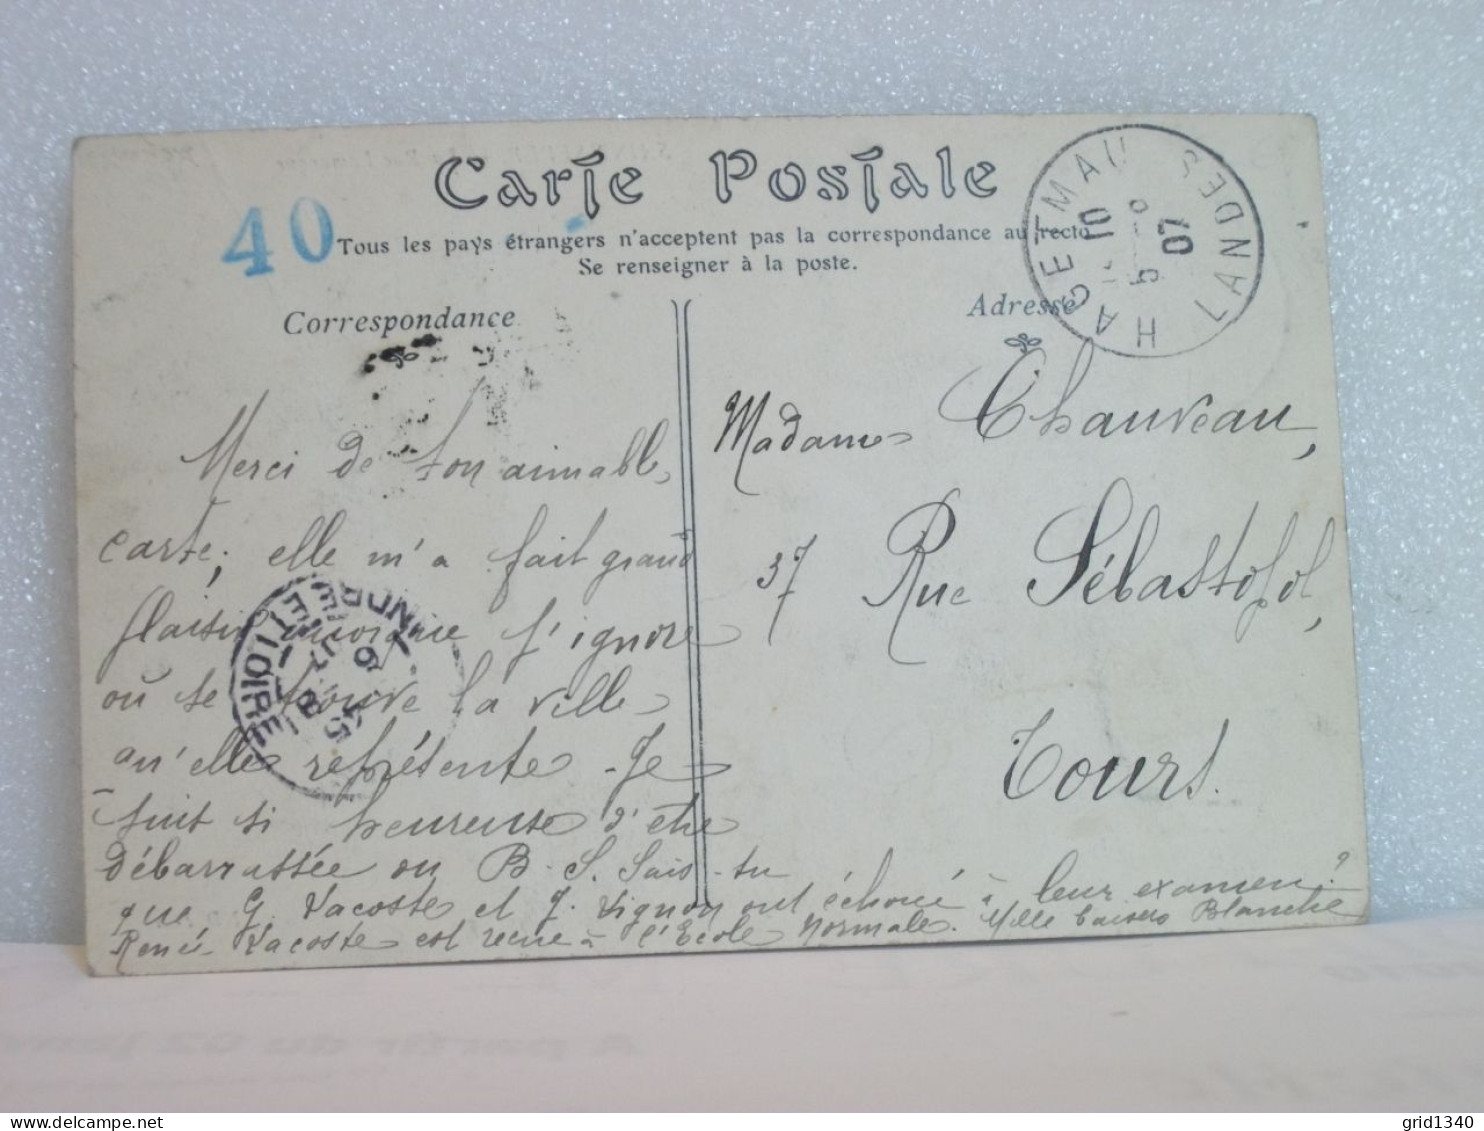 Carte Postale
40
Tous les pays étrangers n'acceptent pas la correspondance au recto
Se renseigner à la poste.
Correspondance
Adresse
HAGETMAU LANDES
10
5 - 8
07
Merci de ton aimable
carte; elle m'a fait grand
plaisir quoique j'ignore
où se trouve la ville
qu'elle représente. Je
suis si heureuse d'être
débarrassée du B. S. Sais-tu
que G. Lacoste et J. Vignon ont échoué à leur examen?
René Lacoste est reçue à l'Ecole Normale. Mille baisers Blanche
Madame Chauveau,
37 Rue Sébastopol,
Tours.
INDRE ET LOIRE
grid1340